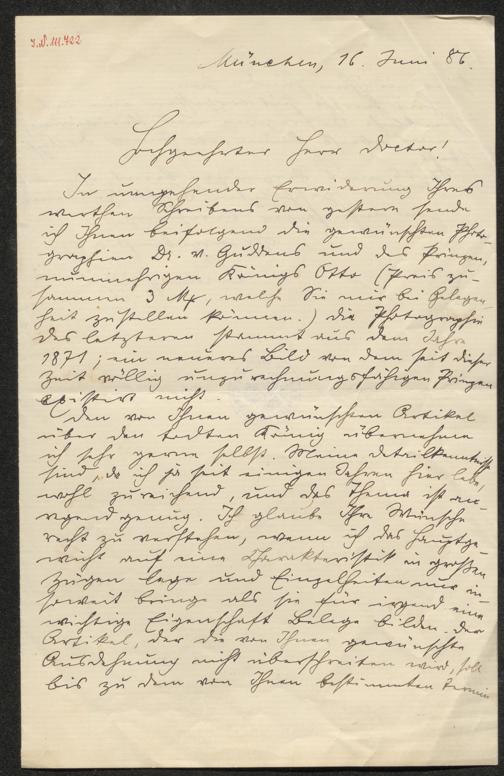 J.N. 111.722
München, 16. Juni 86.
Hochgeehrter Herr Doctor!
In umgehender Erwiderung Ihres
werthen Schreibens von gestern sende
ich Ihnen beifolgend die gewünschten Photo-
graphien Dr. v. Guddens und des Prinzen,
nunmehrigen Königs Otto (Preis zu-
sammen 3 Mk, welche Sie mir bei Gelegen-
heit zustellen können.) Die Photographie
des letzteren stammt aus dem Jahre
1871; ein neueres Bild von dem seit dieser
Zeit völlig unzurechnungsfähigen Prinzen
existirt nicht.
Den von Ihnen gewünschten Artikel
über den todten König übernehme
ich sehr gerne selbst. Meine Detailkenntnisse
sind, da ich ja seit einigen Jahren hier lebe,
wohl zureichend, und das Thema ist an-
regend genug. Ich glaube Ihre Wünsche
recht zu verstehen, wenn ich das Hauptge-
wicht auf eine Charakteristik in großen
Zügen lege und Einzelheiten nur in-
soweit bringe als sie für irgend eine
wichtige Eigenschaft Belege bilden. Der
Artikel, der die von Ihnen gewünschte
Ausdehnung nicht überschreiten wird, soll
bis zu dem von Ihnen bestimmten Termin